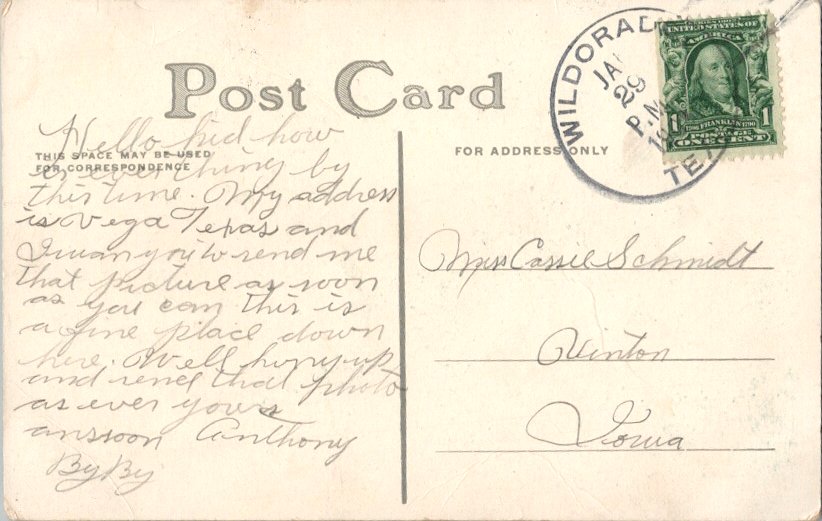 Post Card
THIS SPACE MAY BE USED
FOR CORRESPONDENCE
FOR ADDRESS ONLY
Hello kid how
is everything by
this time. My address
is Vega Texas and
I wan you to send me
that picture as soon
as you can this is
a fine place down
here. Well hurry up
and send that photo
as ever yours
ans soon Anthony
By By
WILDORAD
JA
29
P.M.
TEX
UNITED STATES OF
AMERICA
1 1
1706 FRANKLIN 1790
POSTAGE
ONE CENT
Miss Cassie Schmidt
Vinton
Iowa